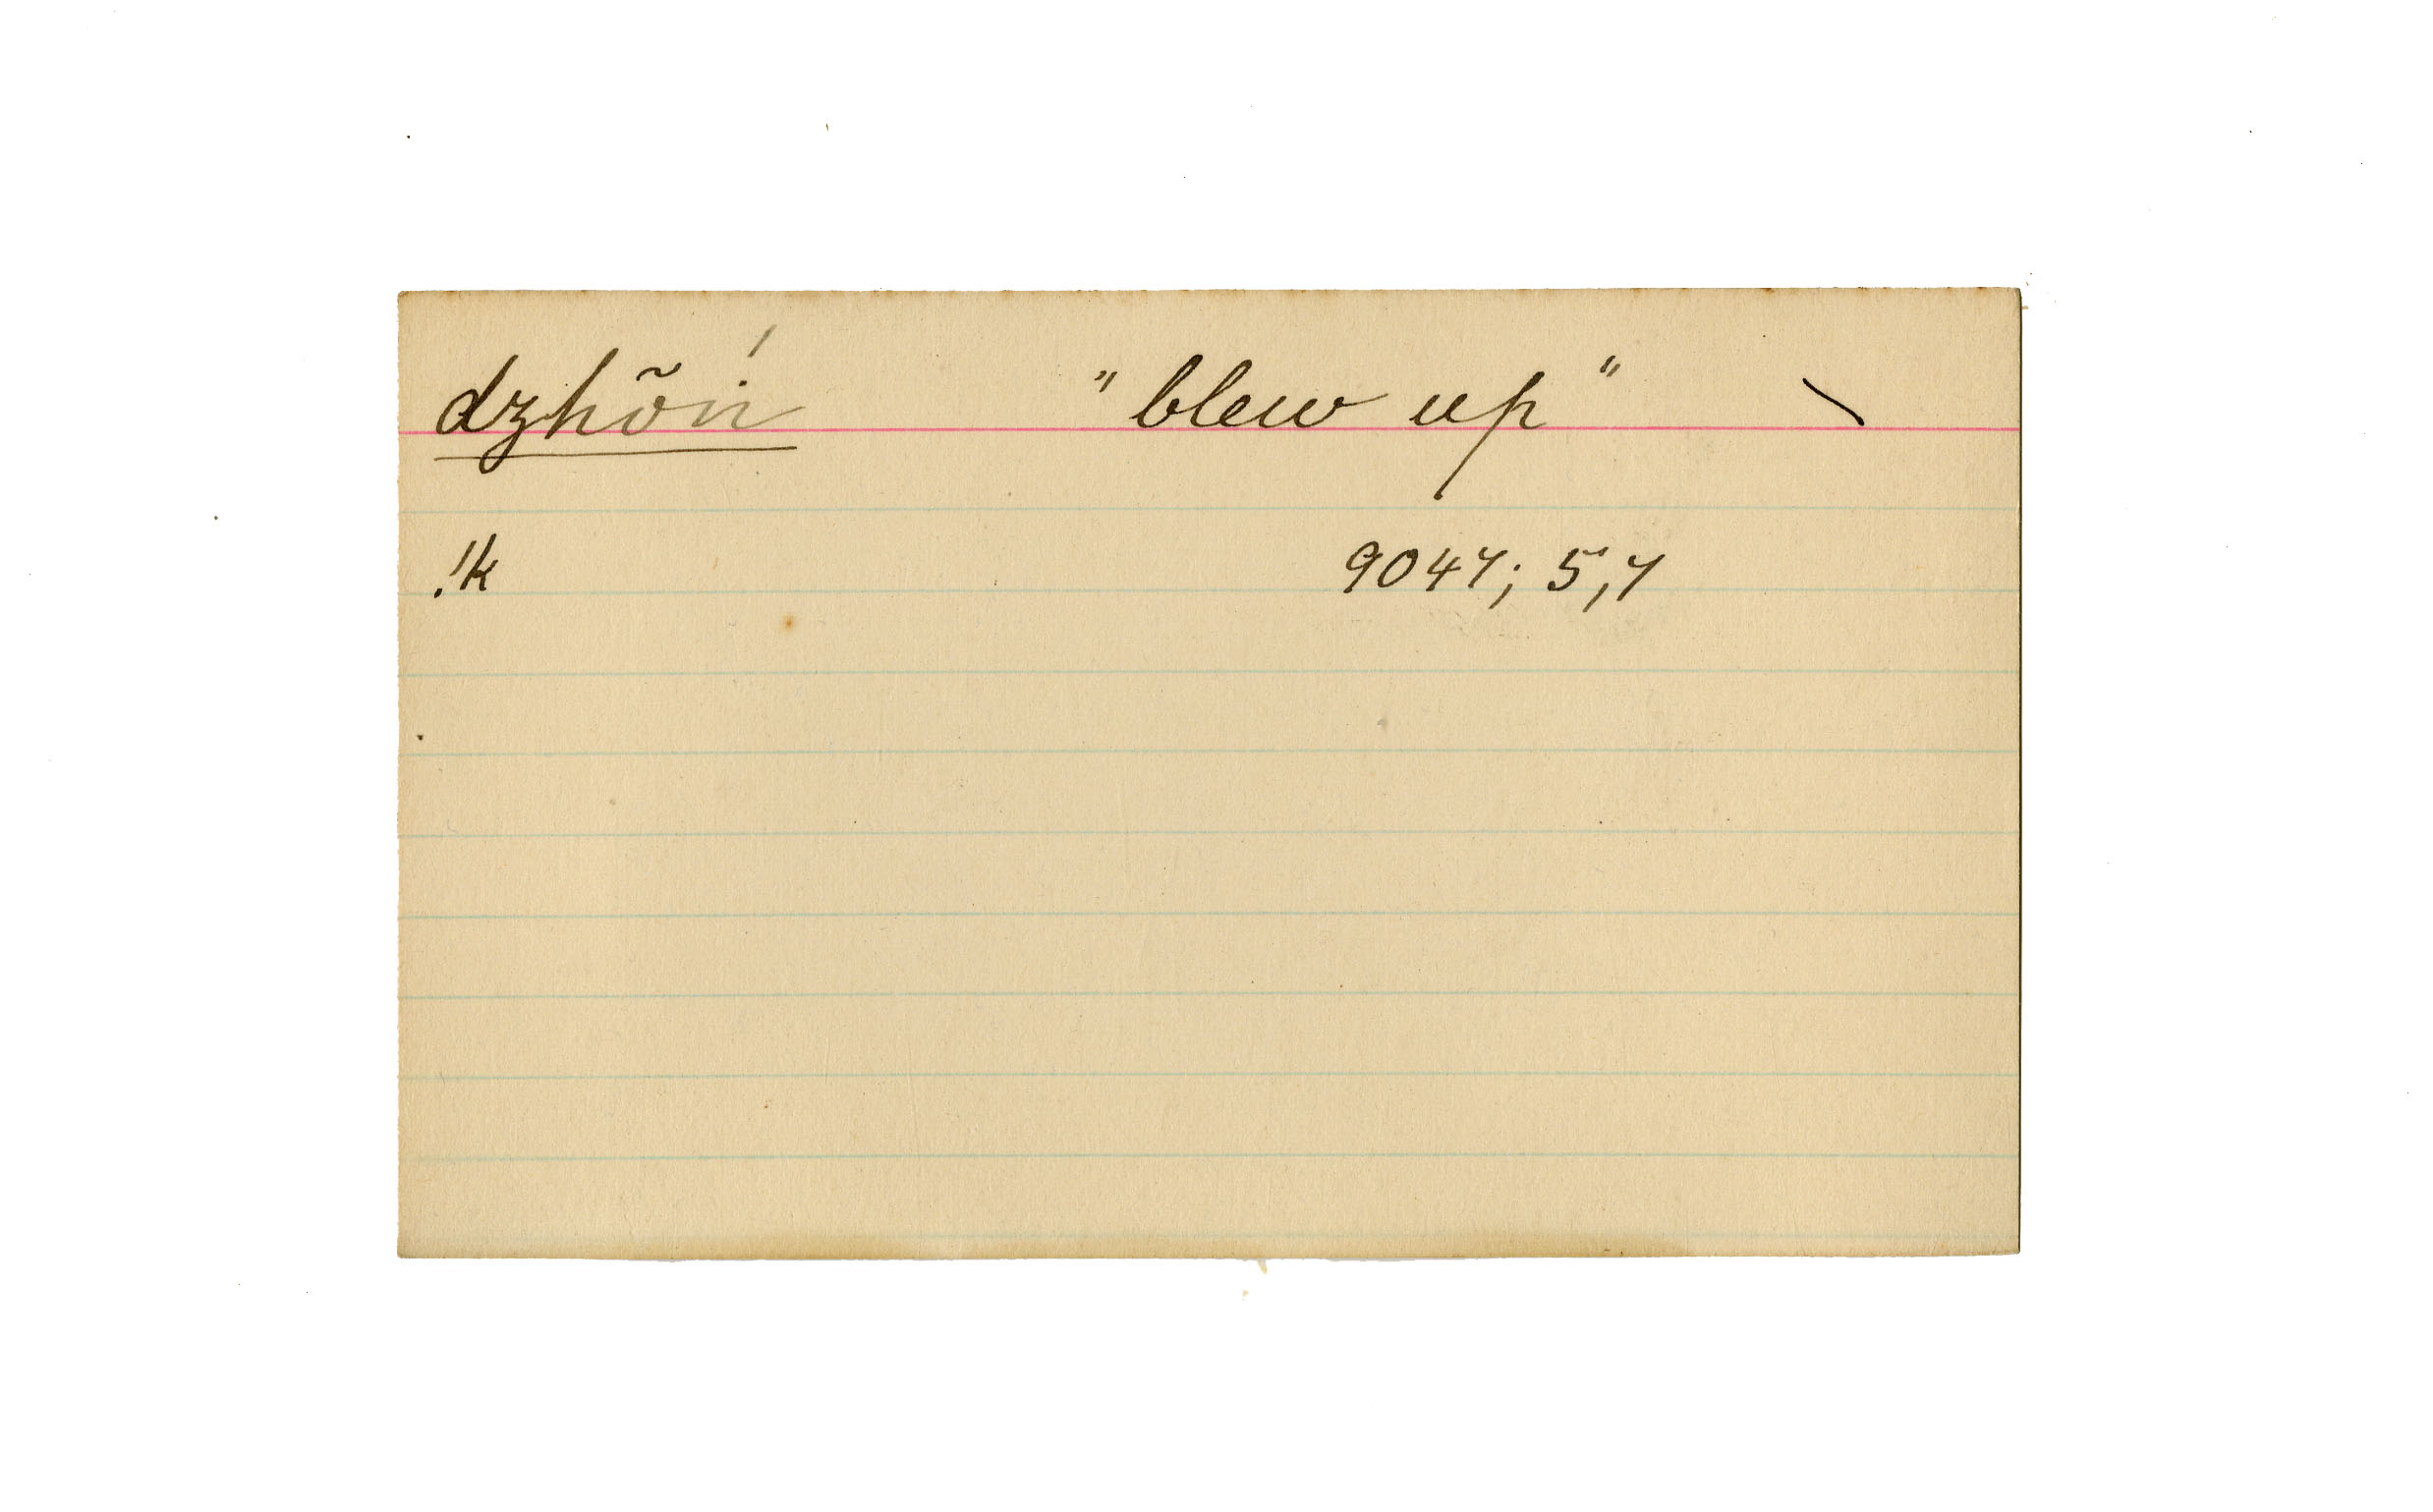 dzhõń "blew up" \
!k 9047; 5,7